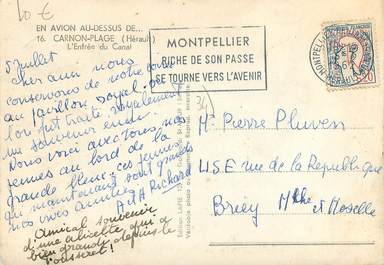 10 €
EN AVION AU-DESSUS DE...
16. CARNON-PLAGE (Hérault)
L'Entrée du Canal
MONTPELLIER
RICHE DE SON PASSE
SE TOURNE VERS L'AVENIR
MONTPELLIER
5 Juillet
cher ami nous
conservons de votre
au pavillon royal où
l'on fut traité royalement
un souvenir ému.
Nous voici avec tous nos
jeunes au bord de la
grande bleue. ces jeunes
qui maintenant sont grands
nos vives amitiés
A et A Richard
Amical souvenir
d'une alicette qui a
bien grandi depuis le
34
Mr Pierre Pluven
45E rue de la République
Briey Mthe et Moselle
Edition LAPIE
Véritable photo